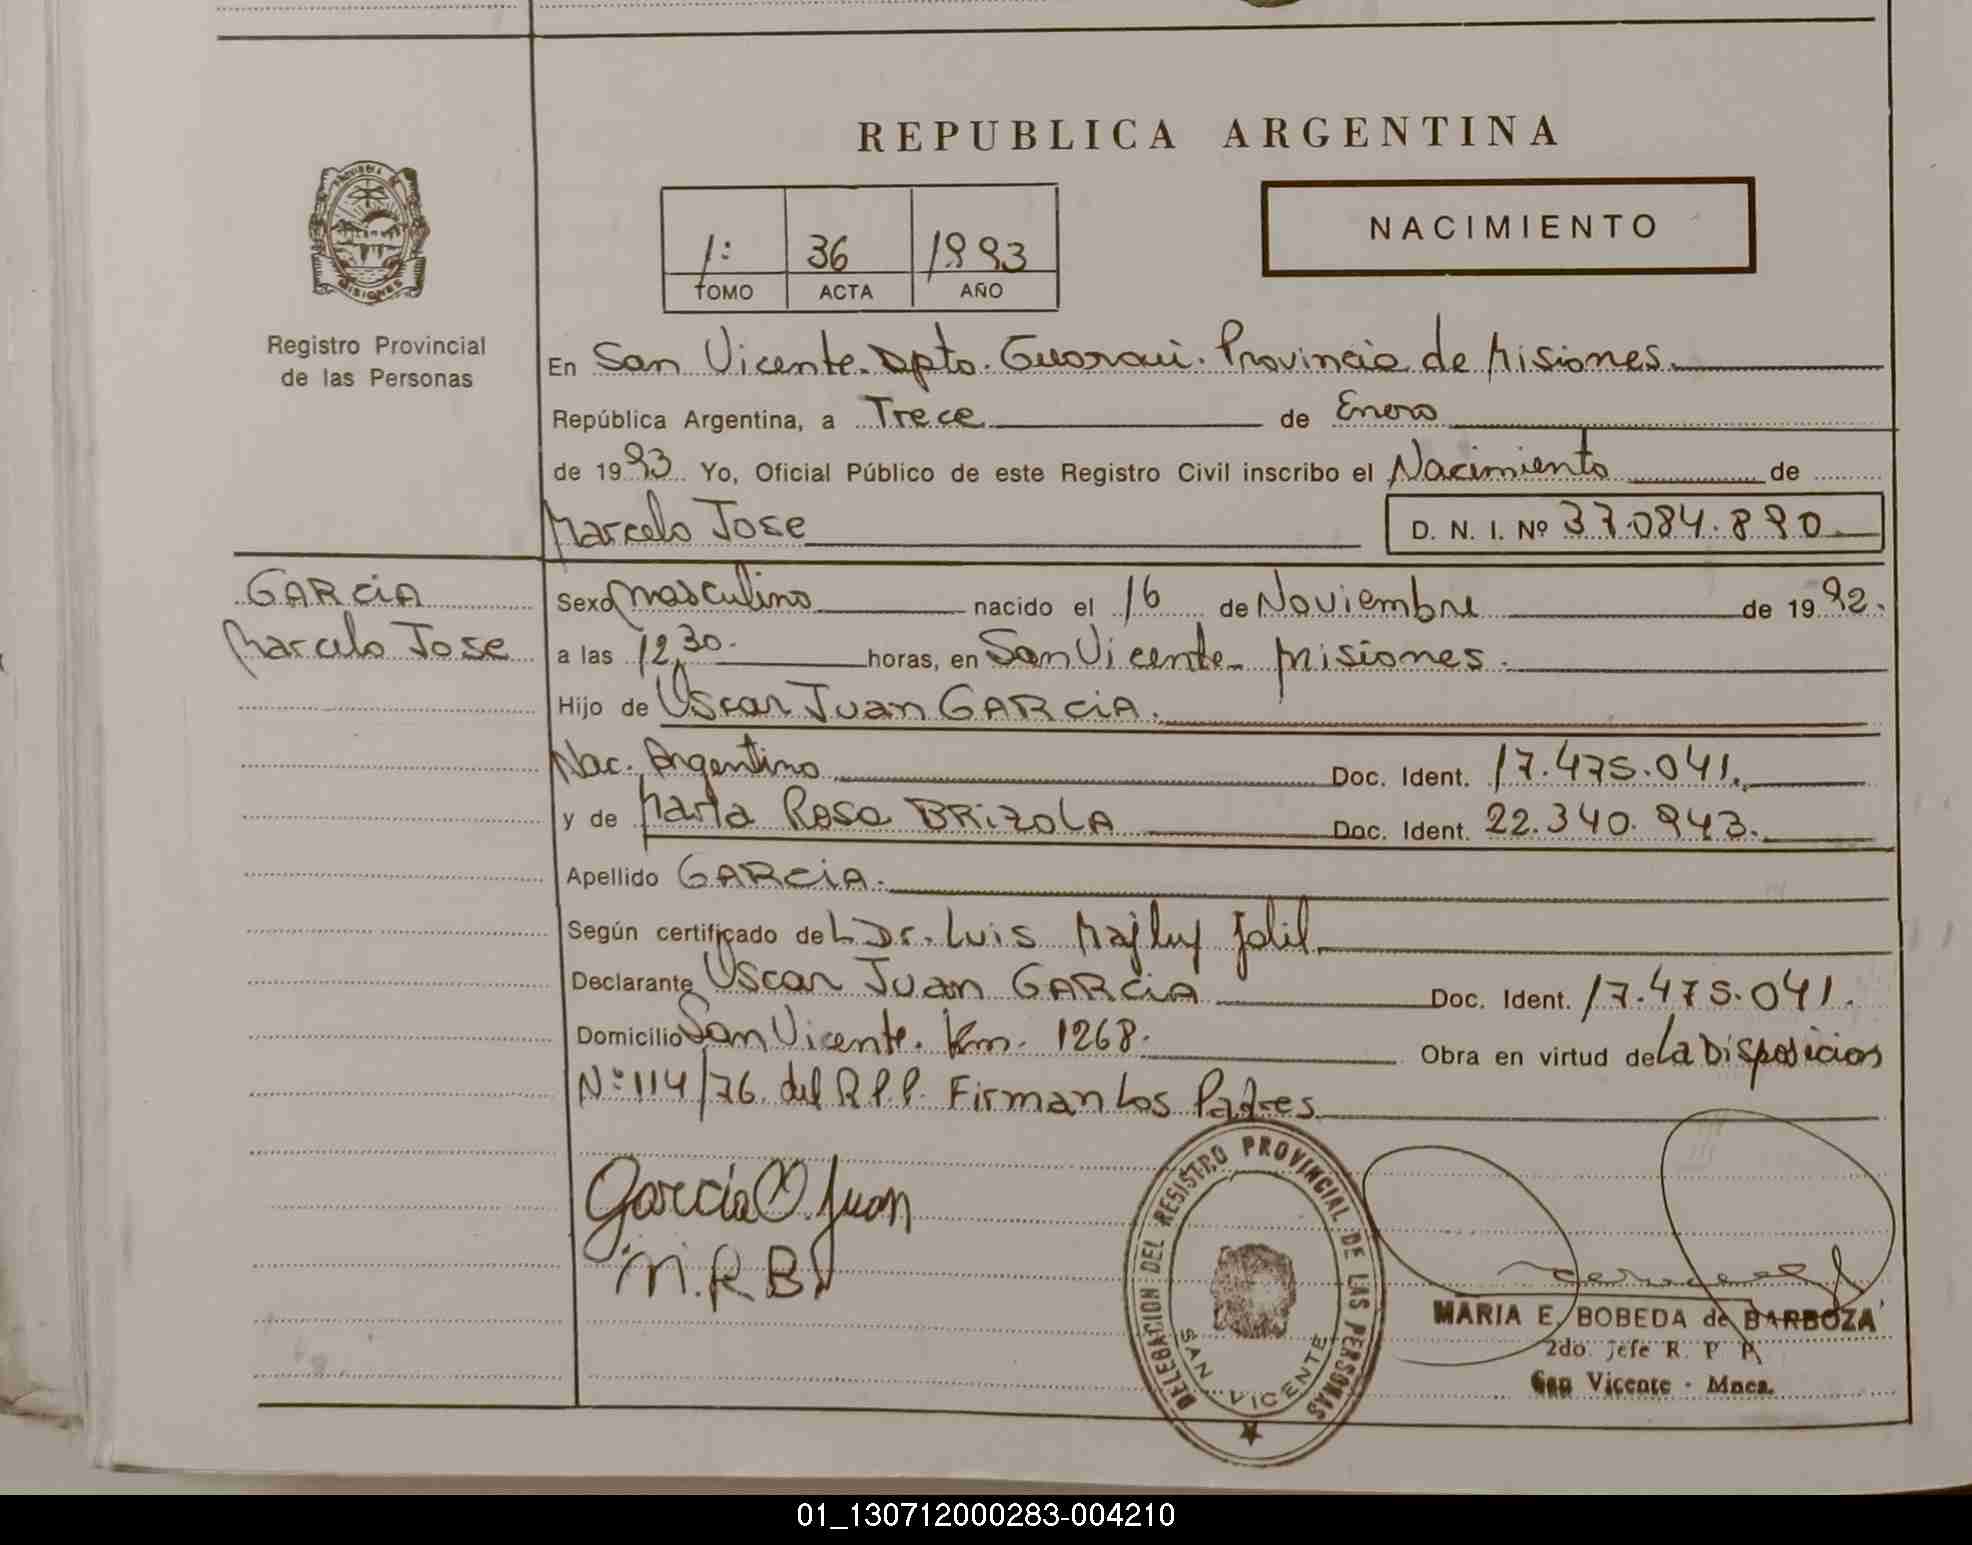 REPUBLICA ARGENTINA
PROVINCIA DE
MISIONES
Registro Provincial
de las Personas
1: 36 1993
TOMO ACTA AÑO
NACIMIENTO
En San Vicente. Dpto. Guarani. Provincia de Misiones
República Argentina, a Trece de Enero
de 1993 Yo, Oficial Público de este Registro Civil inscribo el Nacimiento de
Marcelo Jose D. N. I. Nº 37.084.890
GARCiA
Marcelo Jose
Sexo masculino nacido el 16 de Noviembre de 1992.
a las 12,30. horas, en San Vicente. Misiones.
Hijo de Oscar Juan GARCiA.
Nac. Argentino Doc. Ident. 17.475.041.
y de Marta Rosa BRiZOLA Doc. Ident. 22.340.943.
Apellido GARCiA.
Según certificado del Dr. Luis Majluf Jalil
Declarante Oscar Juan GARCiA Doc. Ident. 17.475.041.
Domicilio San Vicente. Km. 1268. Obra en virtud de La Disposicion
Nº 114/76. del R.P.P. Firman Los Padres
Garcia O. Juan
M.R.B.
DELEGACION DEL REGISTRO PROVINCIAL DE LAS PERSONAS
SAN VICENTE
MARIA E. BOBEDA de BARBOZA
2do. Jefe R. P. P.
San Vicente - Mnes.
01_130712000283-004210